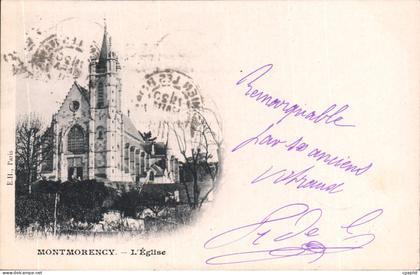 Remarquable
par ses anciens
vitraux
E.H., Paris
MONTMORENCY. — L'Église